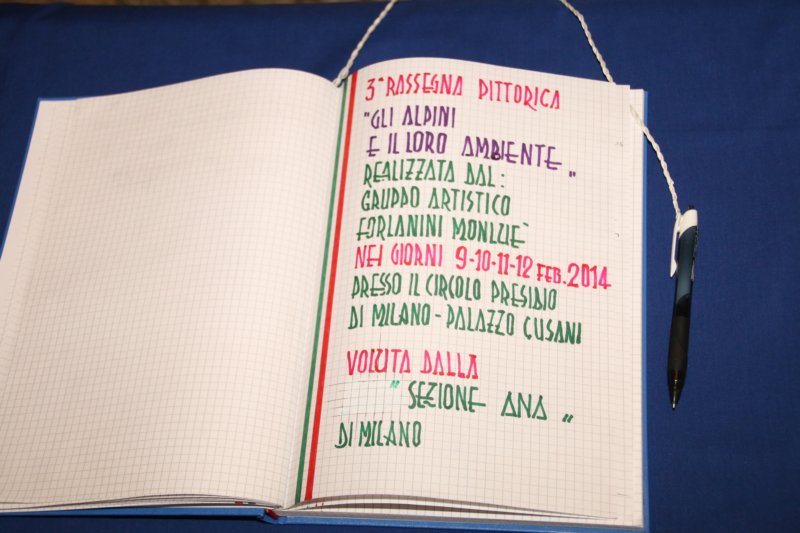 3ª RASSEGNA PITTORICA
"GLI ALPINI
E IL LORO AMBIENTE"
REALIZZATA DAL:
GRUPPO ARTISTICO
FORLANINI MONLUÈ
NEI GIORNI 9-10-11-12 FEB. 2014
PRESSO IL CIRCOLO PRESIDIO
DI MILANO - PALAZZO CUSANI
VOLUTA DALLA
"SEZIONE ANA"
DI MILANO